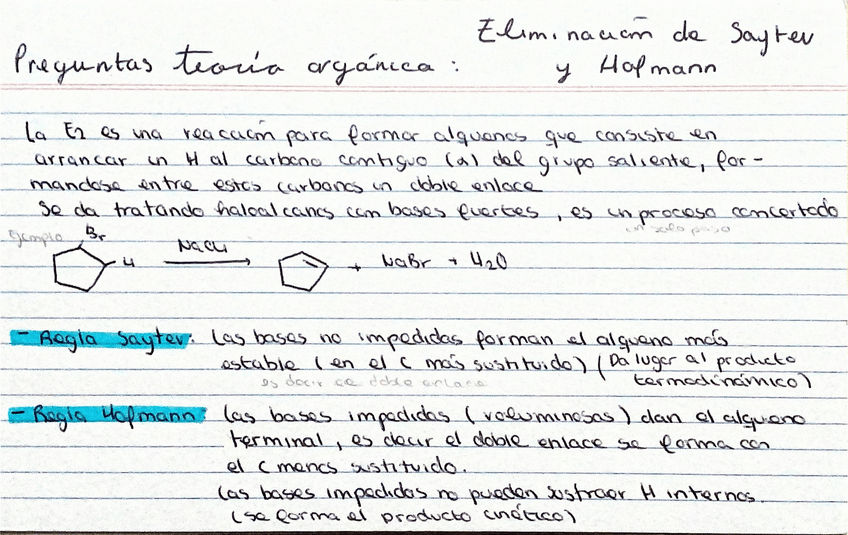 Eliminación de Saytev
Preguntas teoría orgánica: y Hofmann
La E2 es una reacción para formar alquenos que consiste en
arrancar un H al carbono contiguo (α) del grupo saliente, for-
mandose entre estos carbonos un doble enlace
Se da tratando haloalcanos con bases fuertes, es un proceso concertado
en solo paso
ejemplo
Br
H NaOH + NaBr + H2O
- Regla Saytev: Las bases no impedidas forman el alqueno más
estable (en el C más sustituido) (Da lugar al producto
es decir ese doble enlace
termodinámico)
- Regla Hofmann: Las bases impedidas (voluminosas) dan el alqueno
terminal, es decir el doble enlace se forma con
el C menos sustituido.
Las bases impedidas no pueden sustraer H internos.
(se forma el producto cinético)